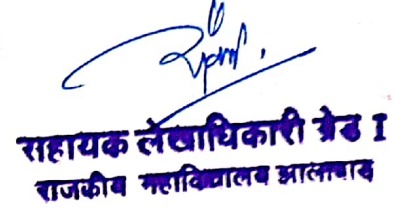 सहायक लेखाधिकारी ग्रेड I
राजकीय महाविद्यालय झालावाड़